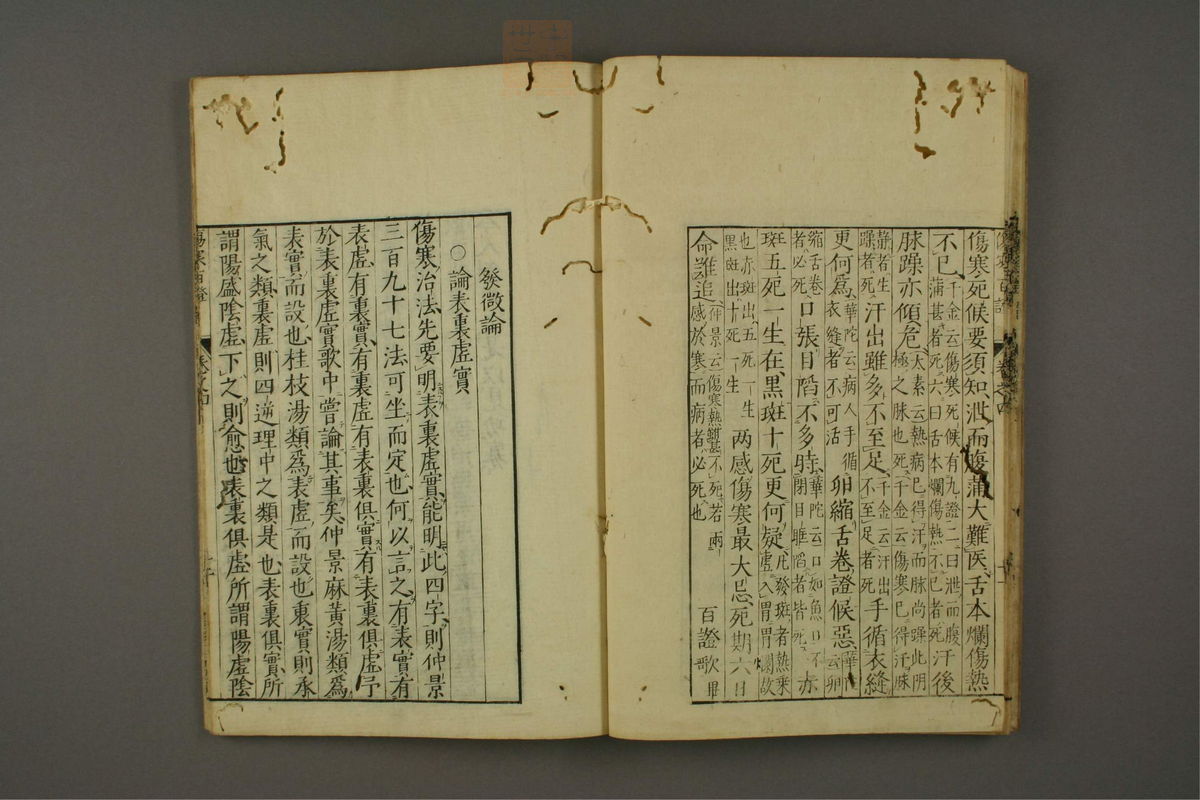 傷寒死候要須知泄而腹滿大難医舌本爛傷熱
不已千金云傷寒死候有九證二曰泄而腹
滿甚者死六曰舌本爛傷熱不已者死汗後
脉躁亦傾危太素云熱病已得汗而脉尚躁此阴
極之脉也死千金云傷寒已得汗脉
靜者生
躁者死汗出雖多不至足千金云汗出
不至足者死手循衣縫
更何為華陀云病人手循
衣縫者不可活卵縮舌卷證候惡華陀云卵
縮舌卷
者必死口張目陷不多時華陀云口如魚口不
閉目眶陷者皆死亦
斑五死一生在黒斑十死更何疑凡發斑者熱乗
虛入胃胃爛故
也赤斑出五死一生
黒斑出十死一生两感傷寒最大忌死期六日
命難追仲景云傷寒熱雖甚不死若两
感於寒而病者必死也百證歌畢
發微論
○論表裏虛實
傷寒治法先要明表裏虛實能明此四字則仲景
三百九十七法可坐而定也何以言之有表實有
表虛有裏實有裏虛有表裏俱實有表裏俱虛予
於表裏虛實歌中嘗論其事矣仲景麻黄湯類為
表實而設也桂枝湯類為表虛而設也裏實則承
氣之類裏虛則四逆理中之類是也表裏俱實所
謂陽盛陰虛下之則愈也表裏俱虛所謂陽虛陰